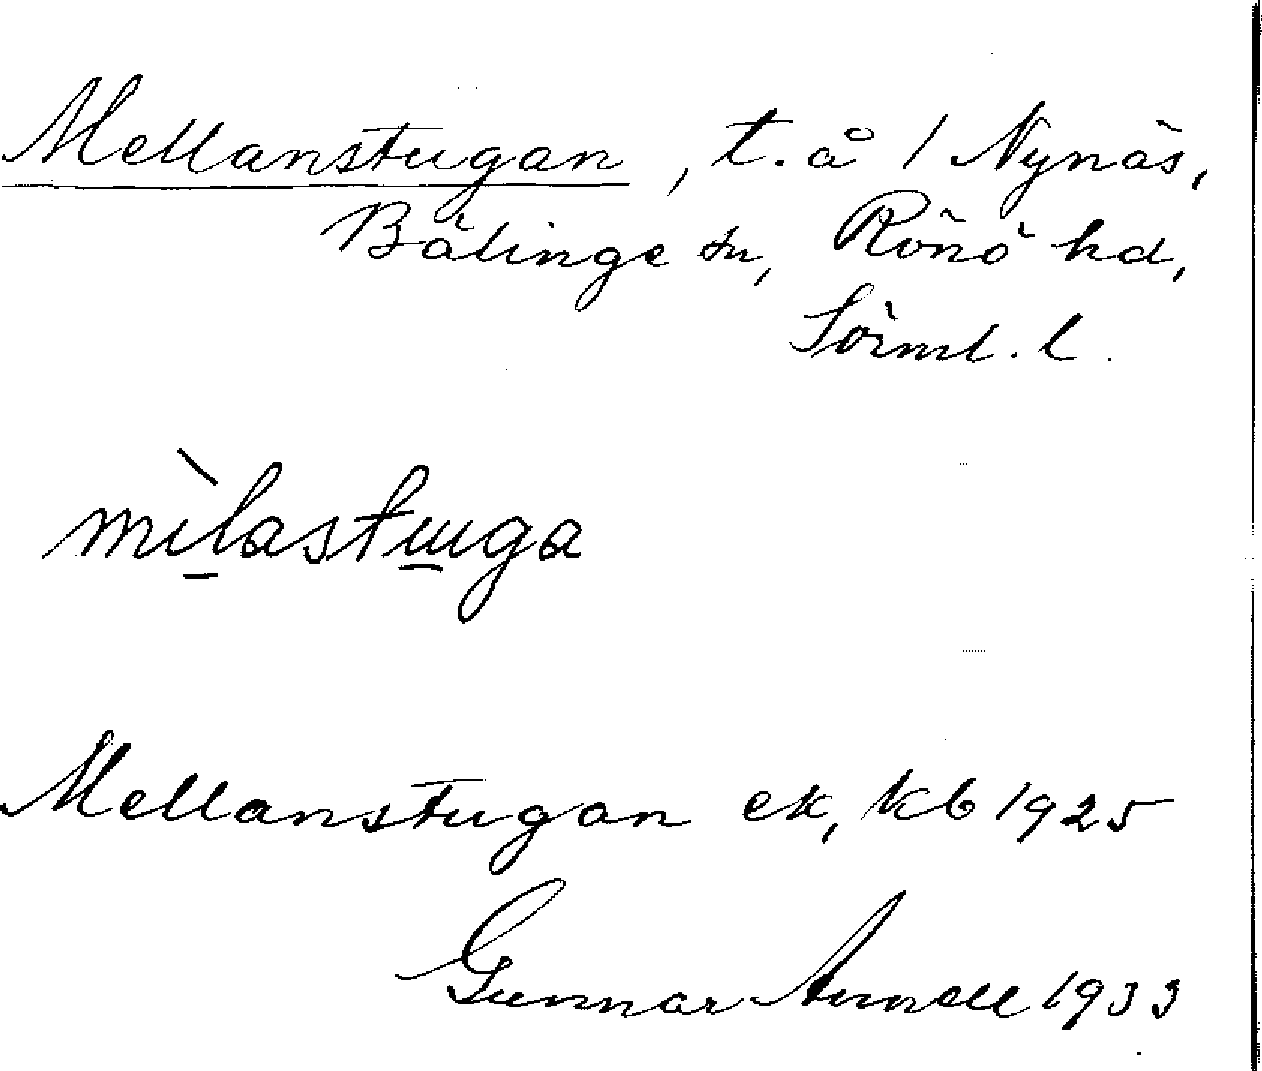 Mellanstugan, t. å / Nynäs,
Bälinge sn, Rönö hd,
Sörml. l.
mìlastuga
Mellanstugan ek, kb 1925
Gunnar Arnell 1933